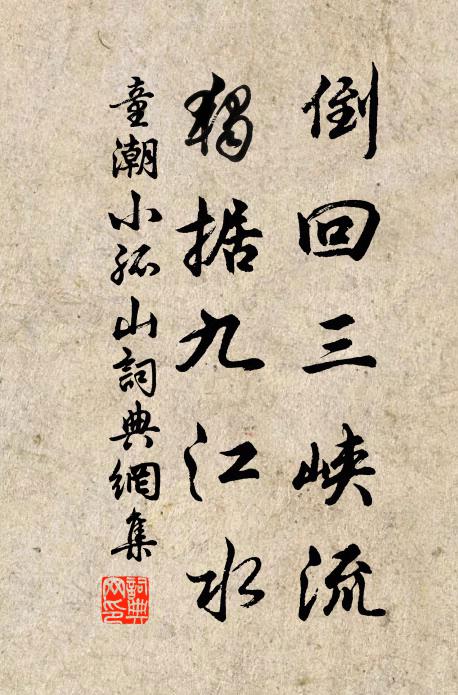 倒回三峡流
独据九江水
童潮小孤山詞典網集
詞典网印